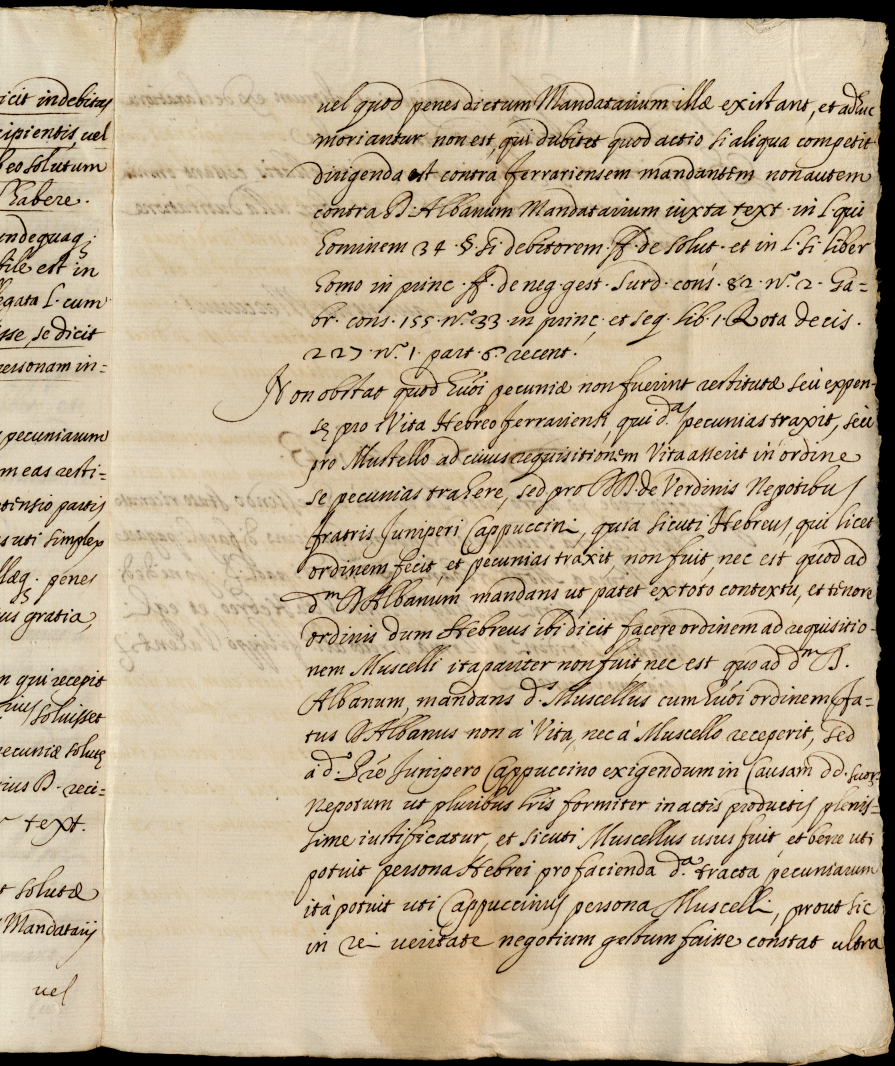 icit indebitas
cipientis, vel
beo solutum
habere.
undequaq;
bile est in
legata L. cum
isse, se dicit
personam in=
pecuniarum
m eas resti=
tentio partis
s uti simplex
llæq. penes
ius gratia,
n qui recepit
soluisset
pecuniæ solutę
rius D. reci=
text.
t solutæ
Mandatarij
vel
vel quod penes dictum Mandatarium illæ existant, et adhuc
moriantur non est, qui dubitet quod actio si aliqua competit
dirigenda est contra ferrariensem mandantem non autem
contra D. Albanum Mandatarium iuxta text. in l. qui
hominem 34. §. si debitorem ff. de solut. et in l. si liber
homo in princ. ff. de neg. gest. Surd. cons. 82. n.º 2. Ga=
br. cons. 155. n.º 33. in princ. et seq. lib. 1. Rota decis.
227. n.º 1. part. 6. recent.
Non obstat quod huiusmodi pecuniæ non fuerint restitutæ seù expen-
sę pro Vita Hebreo ferrarienti, qui d.ª pecunias traxit, seù
pro Mustello ad cuius requisitionem Vita asserit in ordine
se pecunias trahere, sed pro DD. de Verdinis Nepotibus
fratris Juniperi Cappuccini, quia sicuti Hebreus, qui licet
ordinem fecit, et pecunias traxit, non fuit, nec est quod ad
d.m D. Albanum mandans ut patet ex toto contextu, et tenore
ordinis dum Hebreus ibi dicit facere ordinem ad requisitio-
nem Muscelli ita pariter non fuit, nec est quo ad d.m D.
Albanum, mandans d.s Muscellus cum hũoi ordinem fa-
tus D. Albanus non à Vita, nec à Muscello receperit, sed
à d.º Fr̃e Junipero Cappuccino exigendum in Causam dd. suor.
Nepotum ut pluribus lr̃is formiter in actis productis plenis=
sime iustificatur, et sicuti Muscellus usus fuit, et bene uti
potuit persona Hebrei pro facienda d.ª tracta pecuniarum
ità potuit uti Cappuccinus persona Muscelli, prout sic
in rei veritate negotium gestum fuisse constat ultra